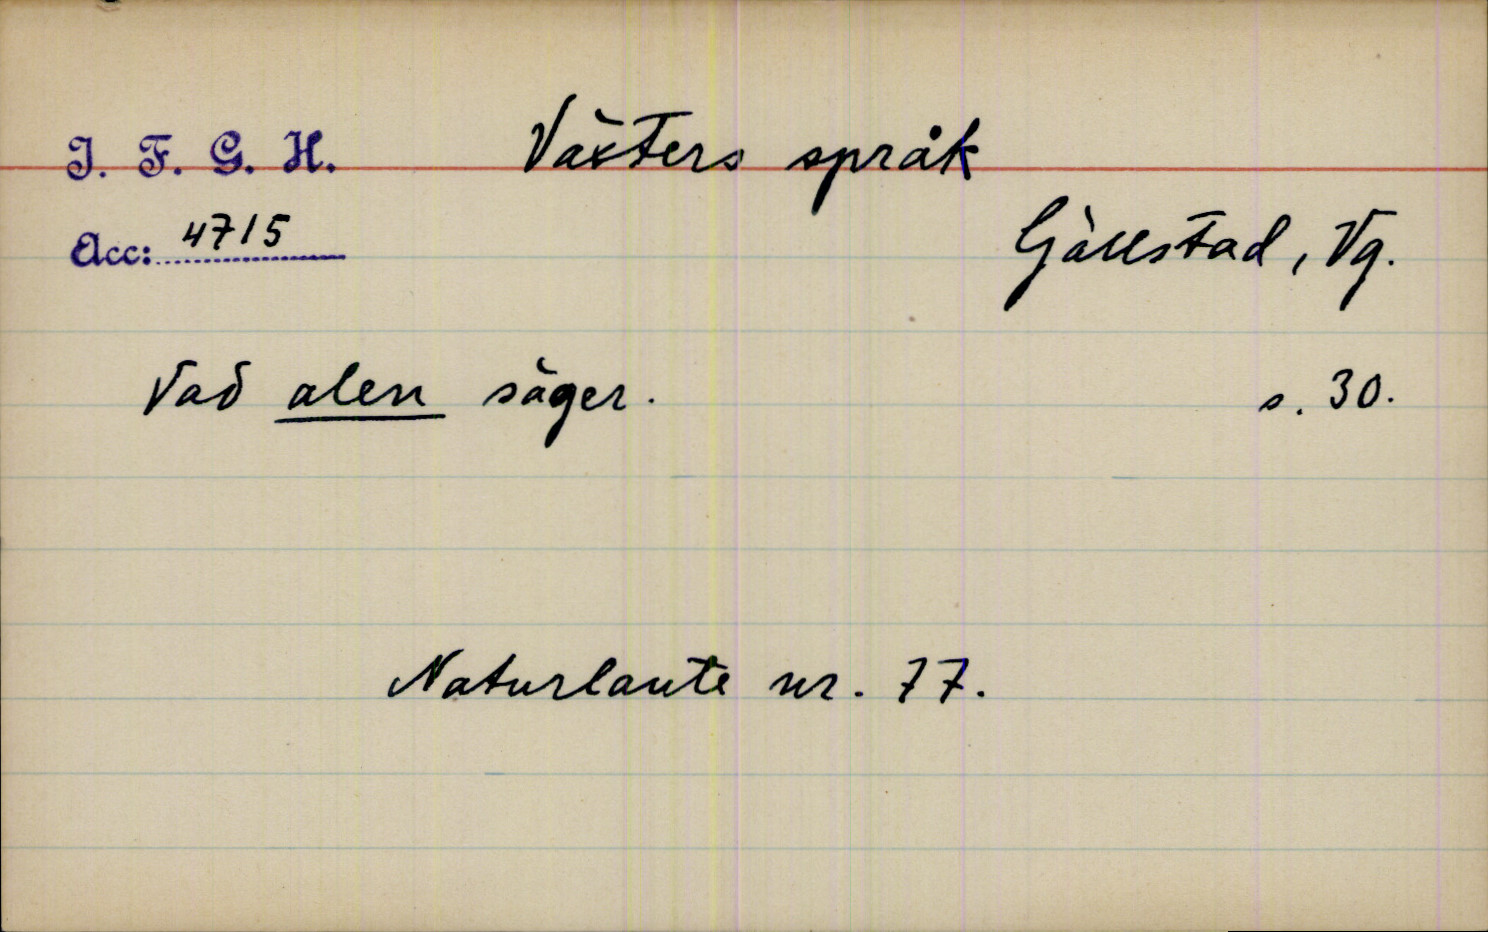 I. F. G. H.
Växters språk
Acc: 4715
Gällstad, Vg.
Vad alen säger. s. 30.
Naturlaute nr. 77.